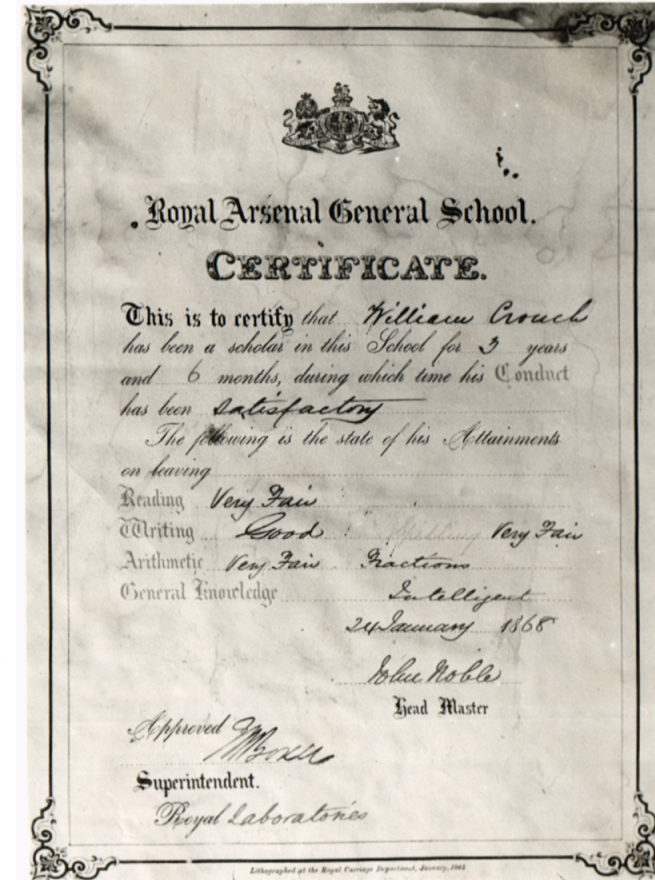 Royal Arsenal General School.
CERTIFICATE.
This is to certify that William Crouch
has been a scholar in this School for 3 years
and 6 months, during which time his Conduct
has been satisfactory
The following is the state of his Attainments
on leaving
Reading Very Fair
Writing Good Spelling Very Fair
Arithmetic Very Fair Fractions
General Knowledge Intelligent
24 January 1868
John Noble
Head Master
Approved
Superintendent.
Royal Laboratories
Lithographed at the Royal Carriage Department, January, 1865